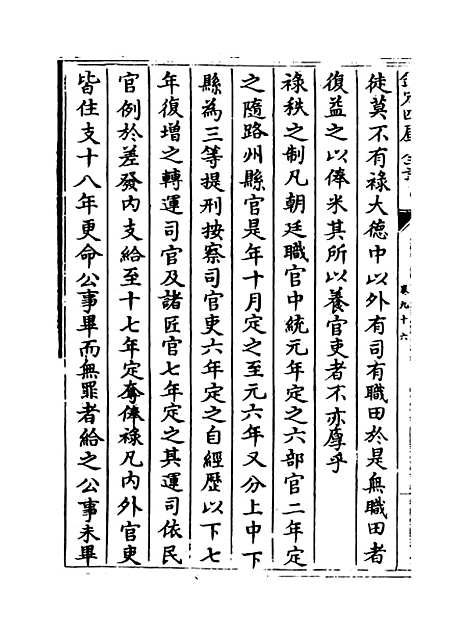 欽定四庫全書
卷九十六
徒莫不有祿大德中以外有司有職田於是無職田者
復益之以俸米其所以養官吏者不亦厚乎
祿秩之制凡朝廷職官中統元年定之六部官二年定
之隨路州縣官是年十月定之至元六年又分上中下
縣為三等提刑按察司官吏六年定之自經歷以下七
年復增之轉運司官及諸匠官七年定之其運司依民
官例於差發內支給至十七年定奪俸祿凡內外官吏
皆住支十八年更命公事畢而無罪者給之公事未畢